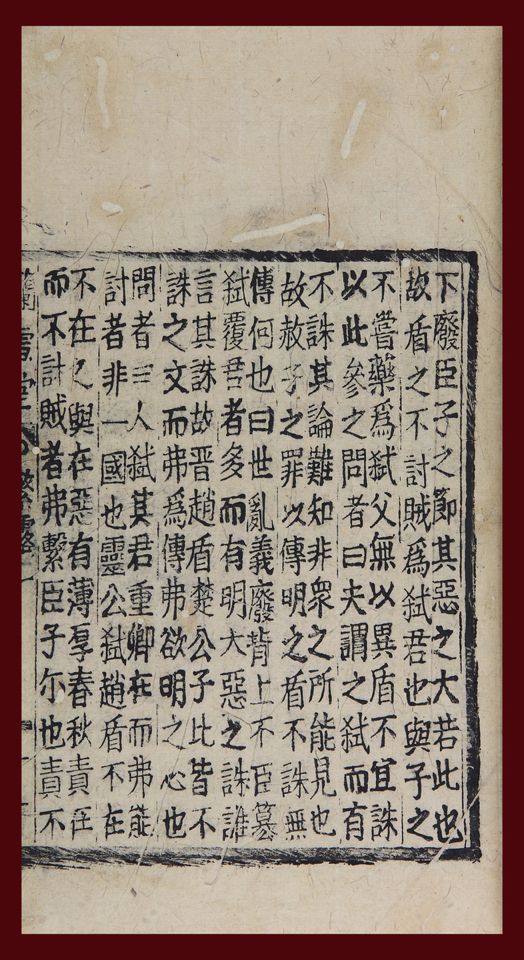 下廢臣子之節其惡之大若此也
故盾之不討賊爲弑君也與子之
不嘗藥爲弑父無以異盾不宜誅
以此參之問者曰夫謂之弑而有
不誅其論難知非衆之所能見也
故赦子之罪以傳明之盾不誅無
傳何也曰世亂義廢背上不臣篡
弑覆君者多而有明大惡之誅誰
言其誅故晉趙盾楚公子此皆不
誅之文而弗爲傳弗欲明之心也
問者曰人弑其君重卿在而弗能
討者非一國也靈公弑趙盾不在
不在之與在惡有薄厚春秋責在
而不討賊者弗繫臣子尔也責不
蘭雪堂 繁露一